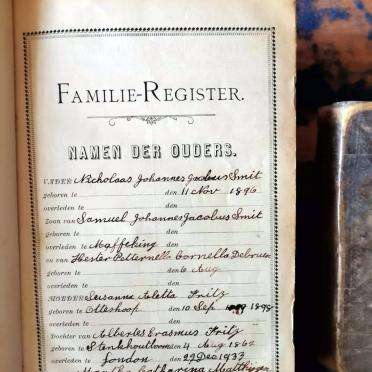 FAMILIE-REGISTER.
NAMEN DER OUDERS.
VADER Nicholaas Johannes Jacobus Smit
geboren te den 11 Nov 1896
overleden te den
Zoon van Samuel Johannes Jacobus Smit
geboren te den
overleden te Maffeking den
en van Hester Petternella Cornella Debruin
geboren te den 6 Aug
overleden te den
MOEDER Susanna Aletta Fritz
geboren te Olteshoop den 10 Sep 1898
overleden te den
Dochter van Albertes Erasmus Fritz
geboren te Stenkhoutboom den 4 Aug 1862
overleden te London den 29 Dec 1933
Catharina